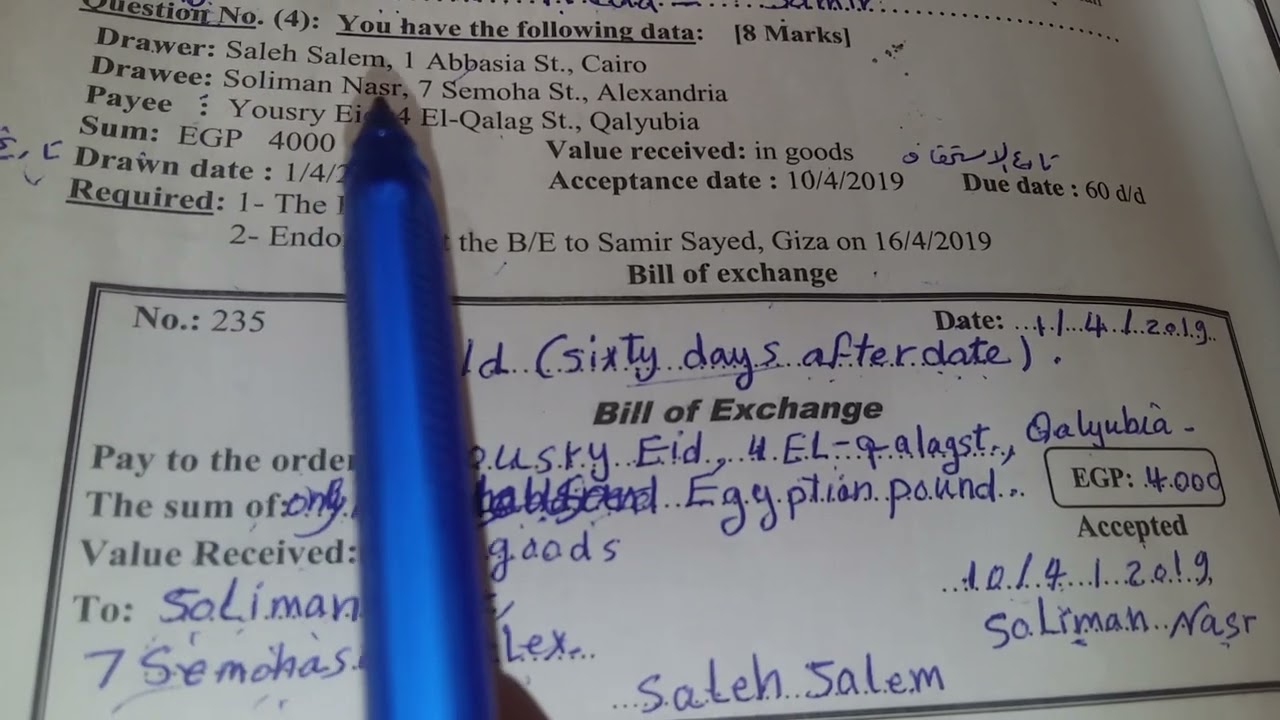 Question No. (4): You have the following data: [8 Marks]
Drawer: Saleh Salem, 1 Abbasia St., Cairo
Drawee: Soliman Nasr, 7 Semoha St., Alexandria
Payee : Yousry Ei 4 El-Qalag St., Qalyubia
Sum: EGP 4000 Value received: in goods تاريخ الاستحقاق
Drawn date : 1/4/2 Acceptance date : 10/4/2019 Due date : 60 d/d
Required: 1- The
2- Endo the B/E to Samir Sayed, Giza on 16/4/2019
Bill of exchange
No.: 235 Date: 1/4/2019
/d (sixty days after date).
Bill of Exchange
Pay to the order ousry Eid, 4 EL-qalagst., Qalyubia -
The sum of: only Egyptian pound EGP: 4000
Value Received: goods Accepted
10/4/2019
To: Soliman Soliman Nasr
7 Semohas lex
Saleh Salem